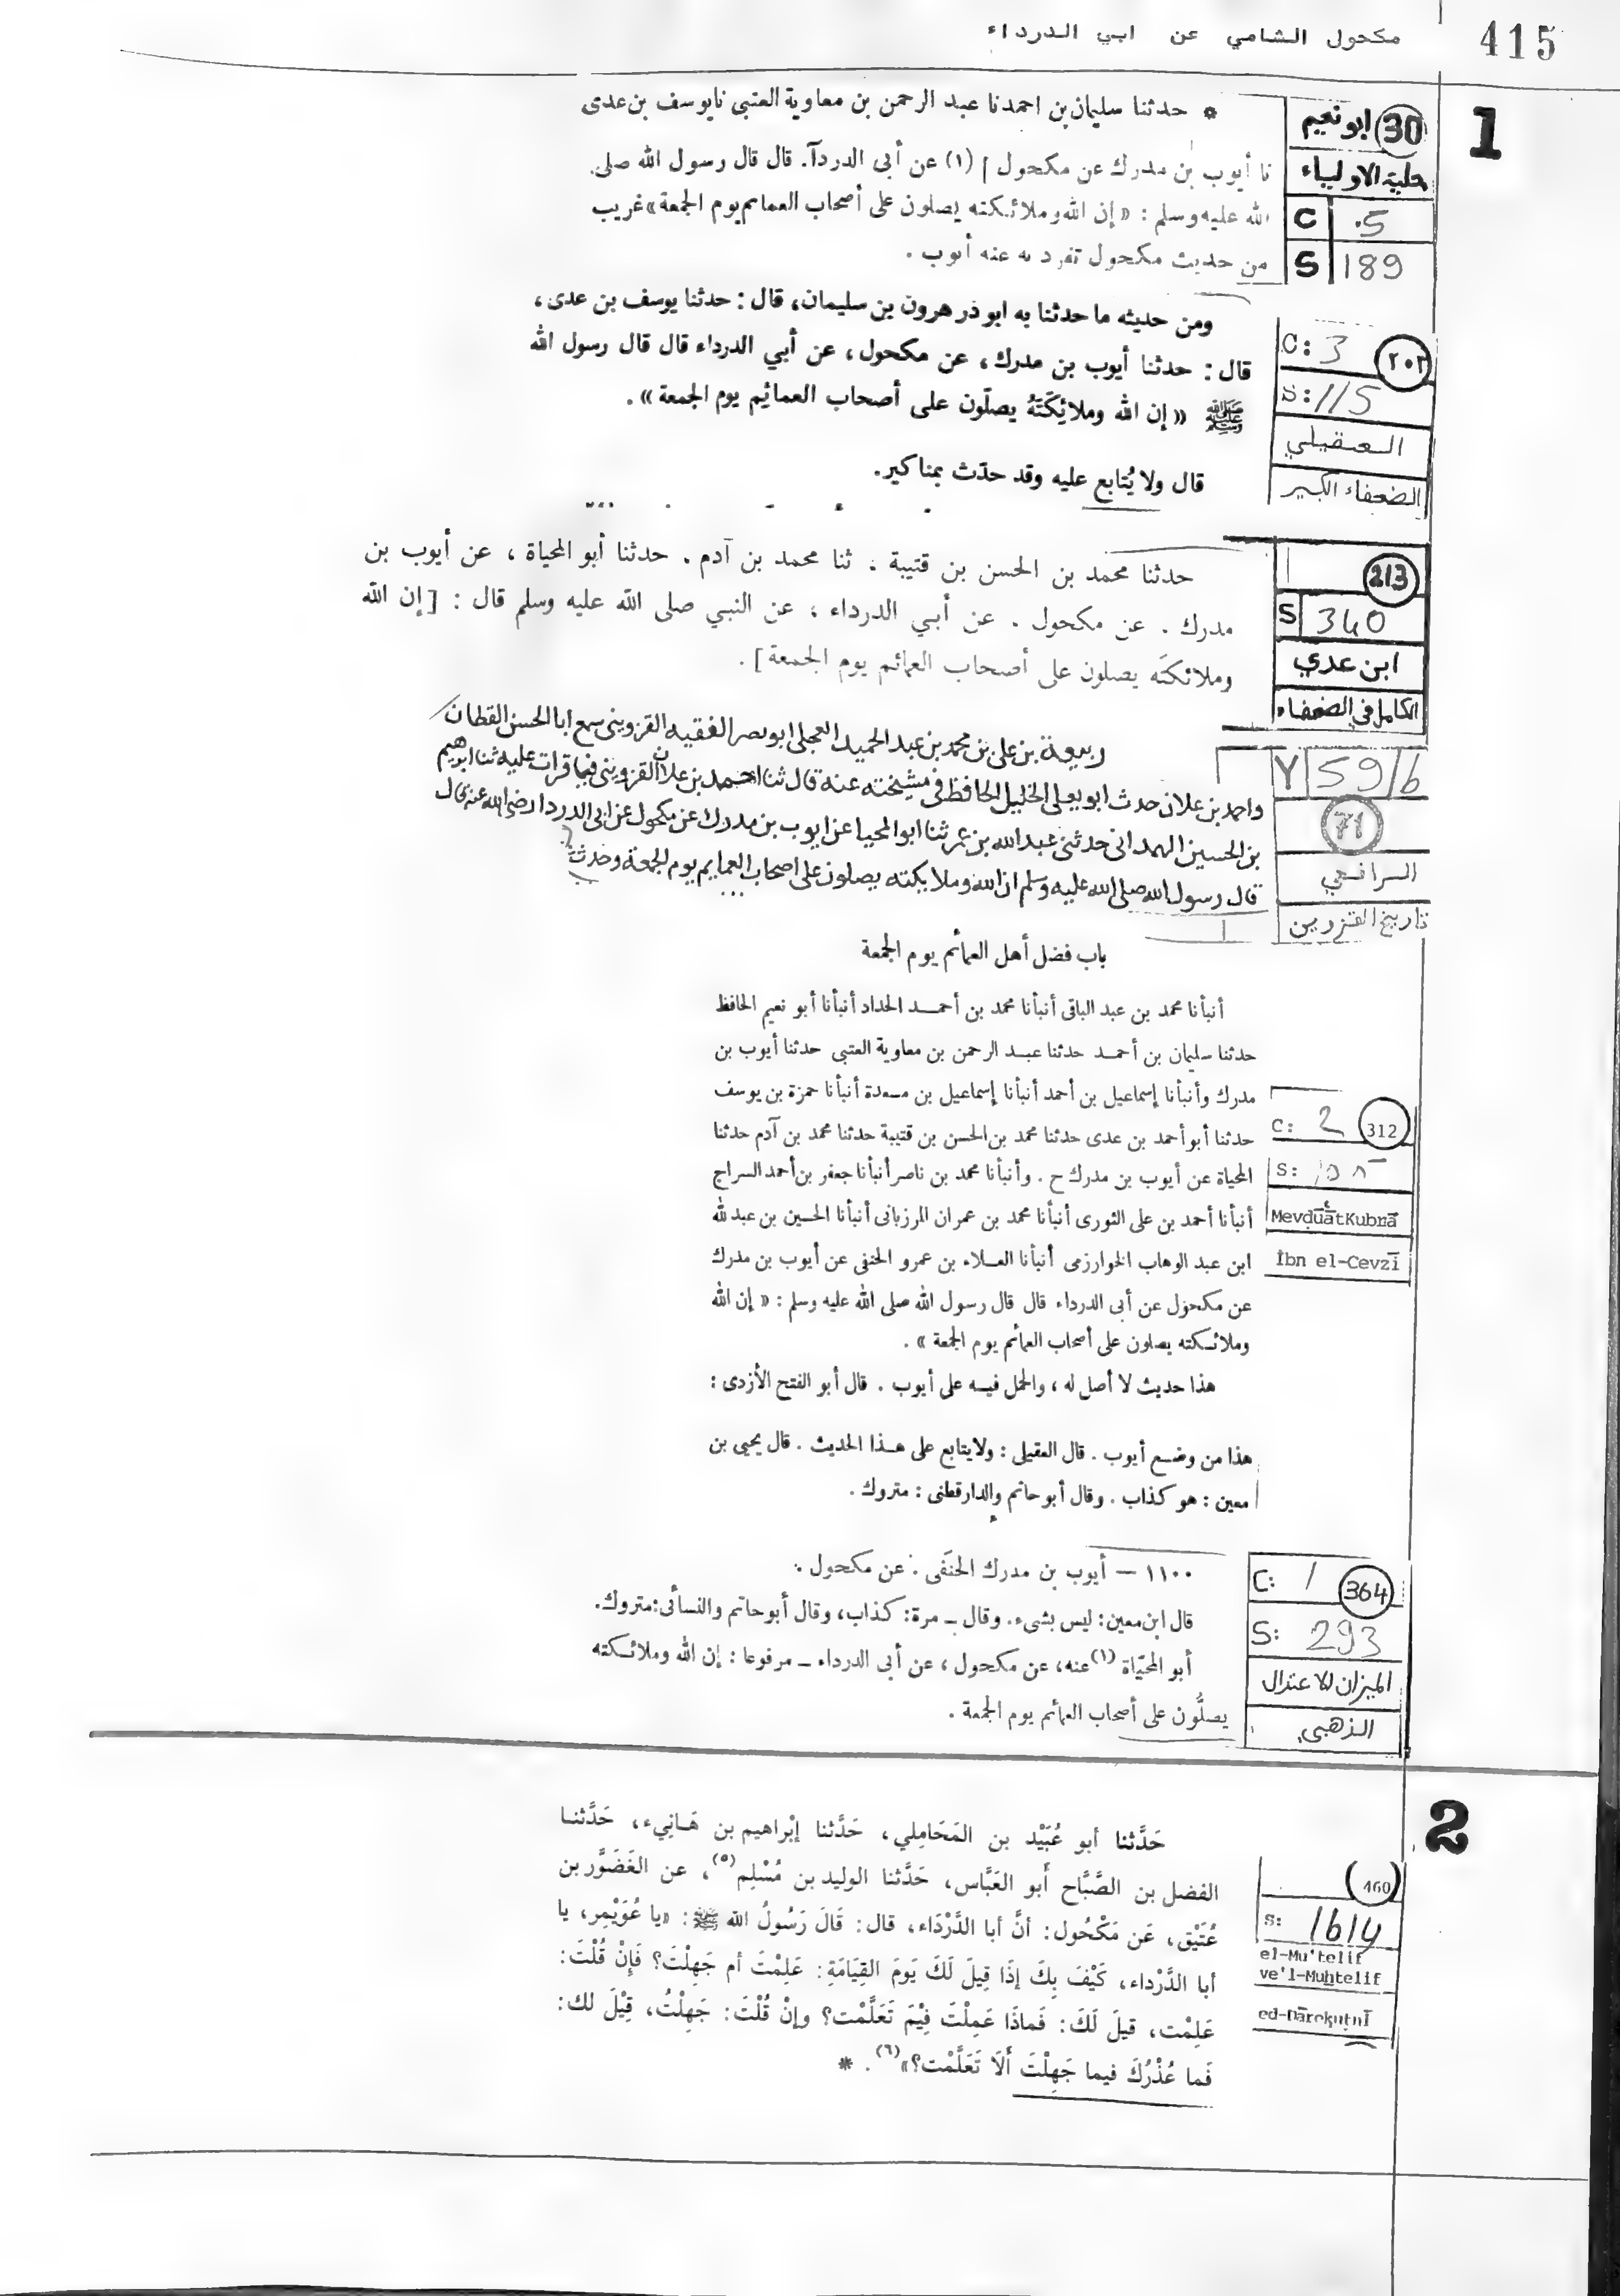 مكحول الشامي عن ابي الدرداء
415
1
* حدثنا سليمان بن احمد نا عبد الرحمن بن معاوية العتبى نا يوسف بن عدى
نا أيوب بن مدرك عن مكحول ] (١) عن أبى الدردآ. قال قال رسول الله صلى
الله عليه وسلم : « إن الله وملائكته يصلون على أصحاب العمائم يوم الجمعة » غريب
من حديث مكحول تفرد به عنه أيوب .
30
ابو نعيم
حلية الاولياء
C 5
S 189
ومن حديثه ما حدثنا به ابو ذر هرون بن سليمان، قال : حدثنا يوسف بن عدى،
قال : حدثنا أيوب بن مدرك، عن مكحول، عن أبي الدرداء قال قال رسول الله
ﷺ « إن الله وملائِكَتَهُ يصلّون على أصحاب العمائِم يوم الجمعة » .
قال ولا يُتابع عليه وقد حدّث بمناكير.
C: 3
٢٠٢
S: 115
العقيلي
الضعفاء الكبير
حدثنا محمد بن الحسن بن قتيبة . ثنا محمد بن آدم . حدثنا أبو المحياة ، عن أيوب بن
مدرك . عن مكحول . عن أبي الدرداء ، عن النبي صلى الله عليه وسلم قال : [ إن الله
وملائكتَه يصلون على أصحاب العمائم يوم الجمعة ] .
213
S 340
ابن عدي
الكامل في الضعفاء
ربيعة بن على بن محمد بن عبد الحميد العجلى ابو نصر الفقيه القزوينى سمع ابا الحسن القطان
واحمد بن علان حدث ابو يعلى الخليل الحافظ فى مشيخته عنه قال ثنا احمد بن علان القزوينى فيما قرات عليه ثنا ابرهيم
بن الحسين الهمدانى حدثنى عبد الله بن عمر ثنا ابو المحيا عن ايوب بن مدرك عن مكحول عن ابى الدردا رضى الله عنه قال
قال رسول الله صلى الله عليه وسلم ان الله وملايكته يصلون على اصحاب العمايم يوم الجمعة وحدث
Y 59/b
71
الرافعي
تاريخ القزوين
باب فضل أهل العمائم يوم الجمعة
أنبأنا محمد بن عبد الباقى أنبأنا محمد بن أحمد الحداد أنبأنا أبو نعيم الحافظ
حدثنا سليمان بن أحمد حدثنا عبد الرحمن بن معاوية العتبى حدثنا أيوب بن
مدرك وأنبأنا إسماعيل بن أحمد أنبأنا إسماعيل بن مسعدة أنبأنا حمزة بن يوسف
حدثنا أبو أحمد بن عدى حدثنا محمد بن الحسن بن قتيبة حدثنا محمد بن آدم حدثنا
المحياة عن أيوب بن مدرك ح . وأنبأنا محمد بن ناصر أنبأنا جعفر بن أحمد السراج
أنبأنا أحمد بن على الثورى أنبأنا محمد بن عمران المرزبانى أنبأنا الحسين بن عبد لله
ابن عبد الوهاب الخوارزمى أنبأنا العلاء بن عمرو الحنفى عن أيوب بن مدرك
عن مكحول عن أبى الدرداء قال قال رسول الله صلى الله عليه وسلم : « إن الله
وملائكته يصلون على أصحاب العمائم يوم الجمعة » .
هذا حديث لا أصل له ، والحمل فيه على أيوب . قال أبو الفتح الأزدى :
هذا من وضع أيوب . قال العقيلى : ولا يتابع على هذا الحديث . قال يحيى بن
معين : هو كذاب . وقال أبو حاتم والدارقطنى : متروك .
C: 2
312
S:
Mevdūât Kubrā
İbn el-Cevzī
١١٠٠ – أيوب بن مدرك الحنَفى . عن مكحول .
قال ابن معين: ليس بشىء. وقال – مرة: كذاب، وقال أبو حاتم والنسائى: متروك.
أبو المحيّاة (١) عنه، عن مكحول ، عن أبى الدرداء – مرفوعا : إن الله وملائكته
يصلُّون على أصحاب العمائم يوم الجمعة .
C: 1
364
S: 293
الميزان للاعتدال
الذهبي
2
حَدَّثنا أبو عُبَيْد بن المَحَامِلي، حَدَّثنا إبْراهيم بن هَانِيء، حَدَّثنا
الفضل بن الصَّبَّاح أَبو العَبَّاس، حَدَّثنا الوليد بن مُسْلِم(٥)، عن الغَضَوَّر بن
عُتَيْق، عَن مَكْحُول: أنَّ أبا الدَّرْدَاء، قال: قَالَ رَسُولُ الله ﷺ: «يا عُوَيْمِر، يا
أبا الدَّرْداء، كَيْفَ بِكَ إذَا قِيلَ لَكَ يَومَ القِيَامَةِ: عَلِمْتَ أم جَهِلْتَ؟ فَإِنْ قُلْتَ:
عَلِمْت، قيلَ لَكَ: فَماذَا عَمِلْتَ فِيْمَ تَعَلَّمْت؟ وإنْ قُلْتَ: جَهِلْتُ، قِيْلَ لك:
فَما عُذْرُكَ فيما جَهِلْتَ أَلَا تَعَلَّمْت؟»(٦). *
460
S: 1614
el-Mu'telif
ve'l-Muhtelif
ed-Dārekutnī